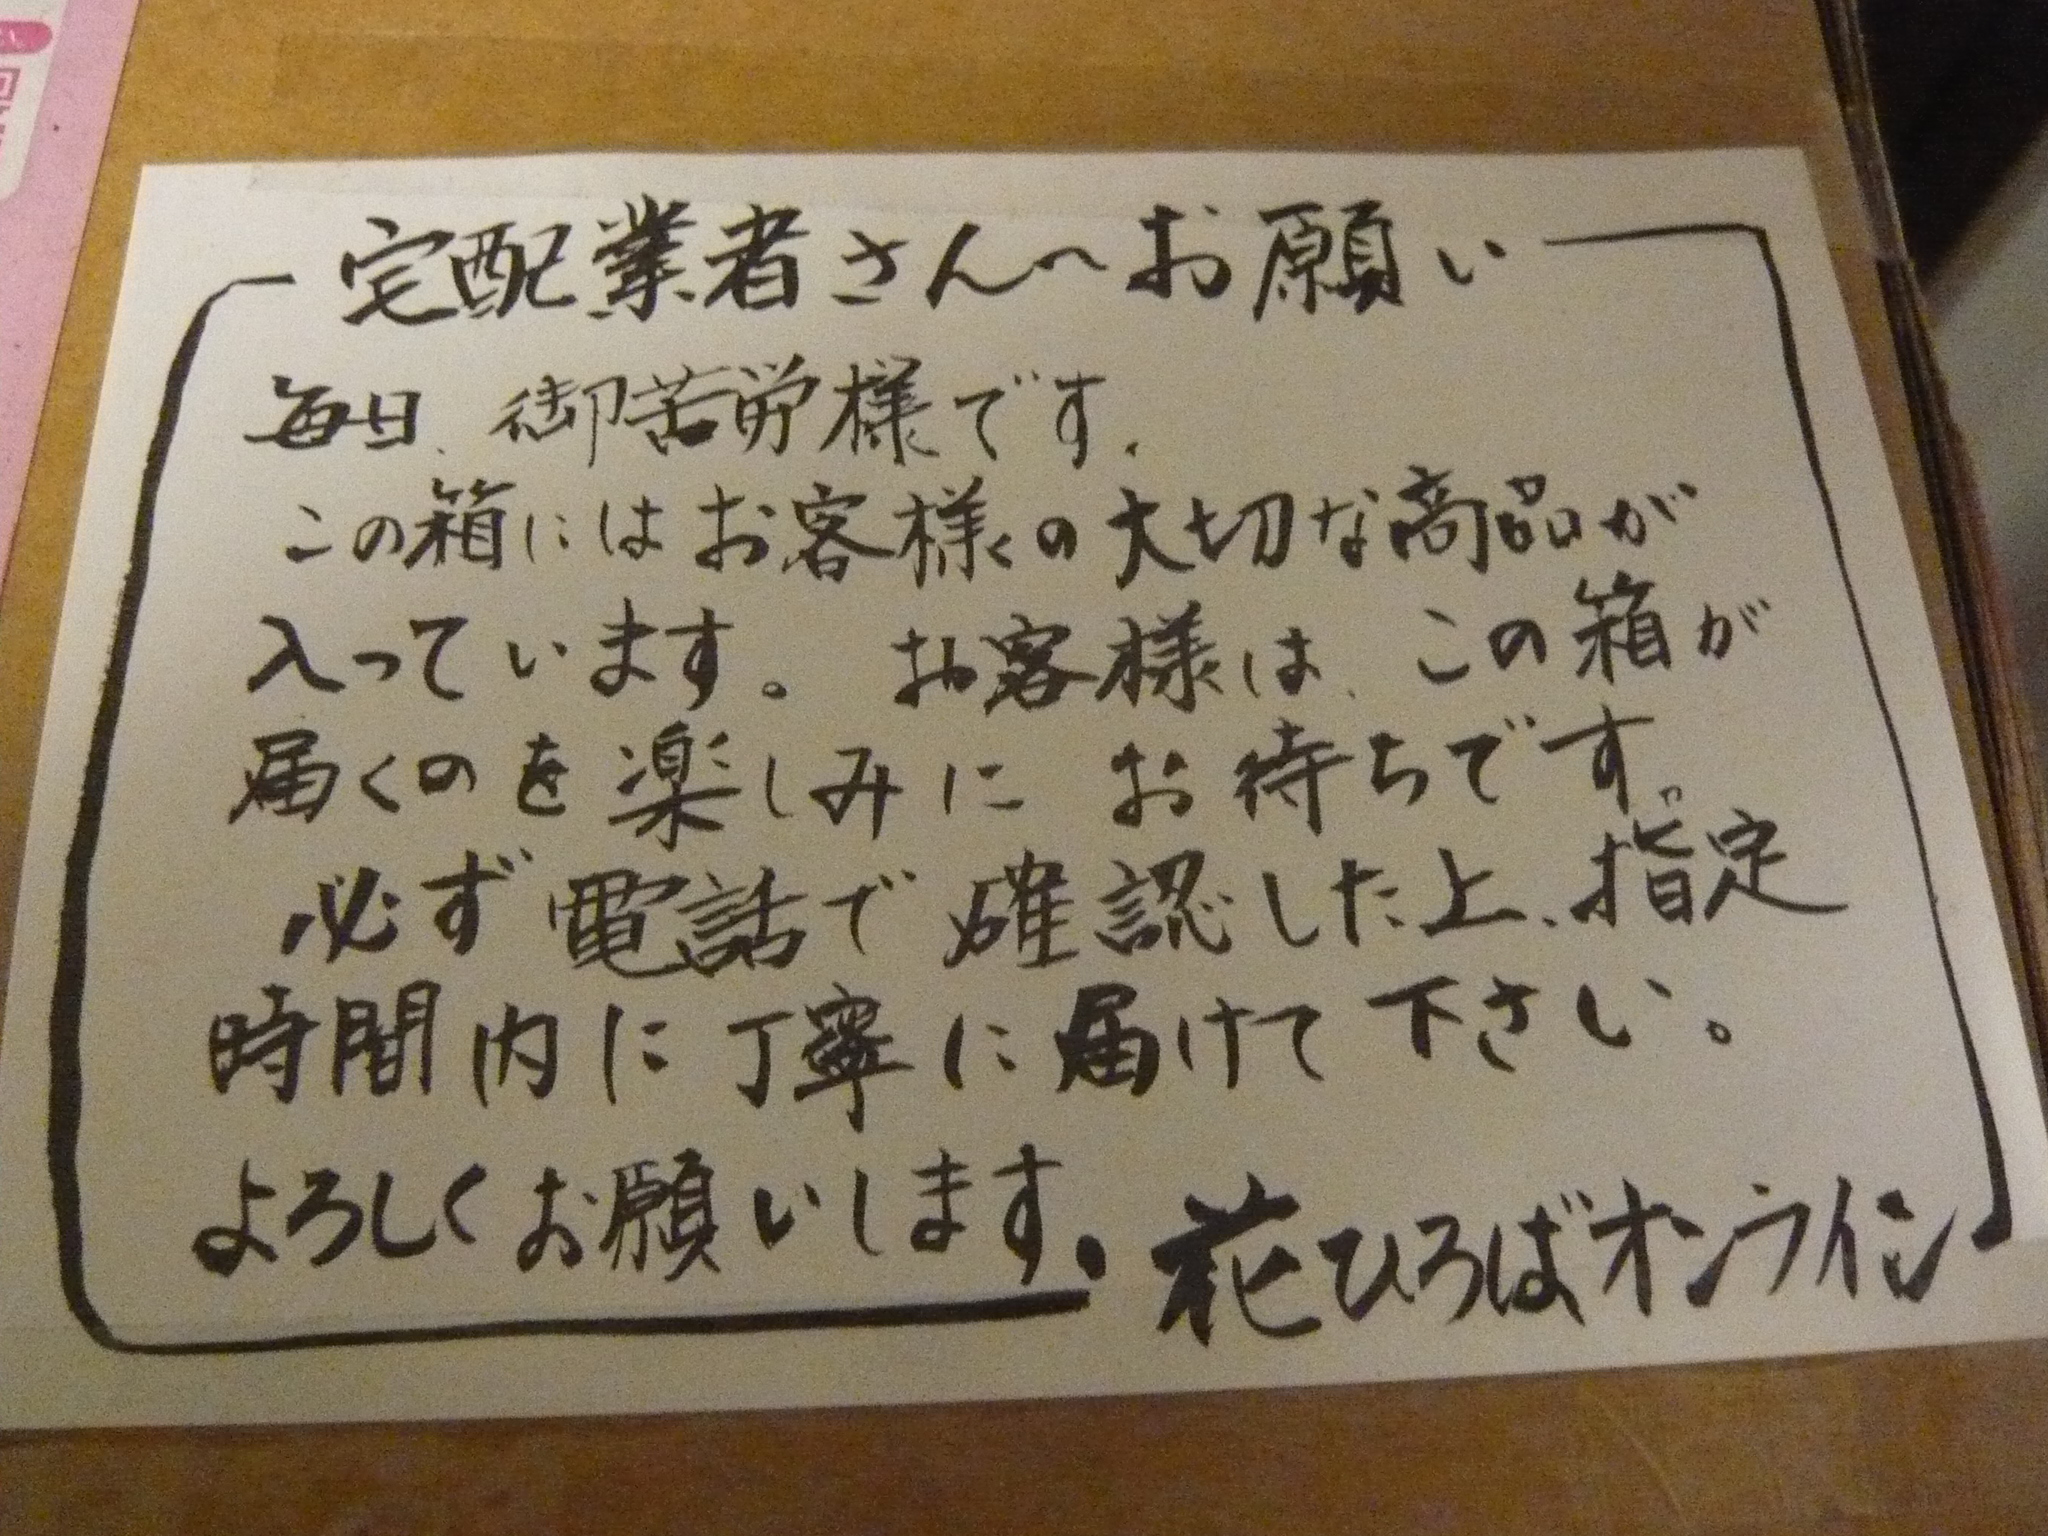 宅配業者さんへお願い
毎日、御苦労様です。
この箱にはお客様の大切な商品が
入っています。お客様は、この箱が
届くのを楽しみにお待ちです。
必ず電話で確認した上、指定
時間内に丁寧に届けて下さい。
よろしくお願いします。
花ひろばオンライン